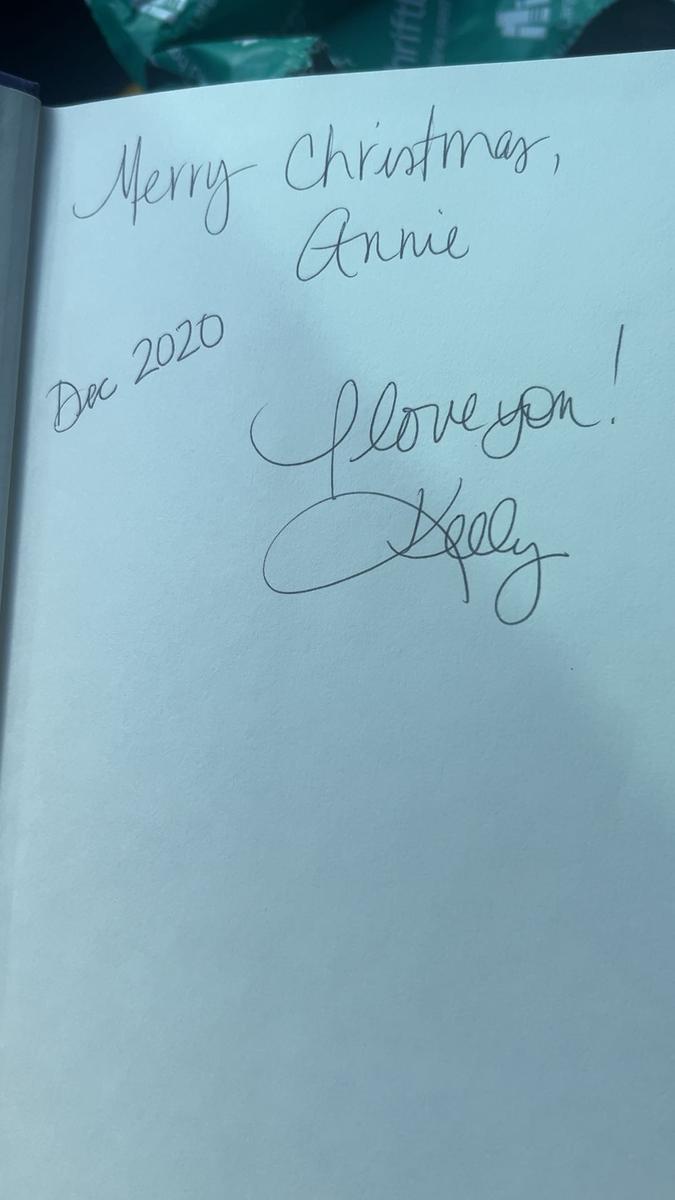 Merry Christmas,
Annie
Dec 2020
I love you!
Kelly